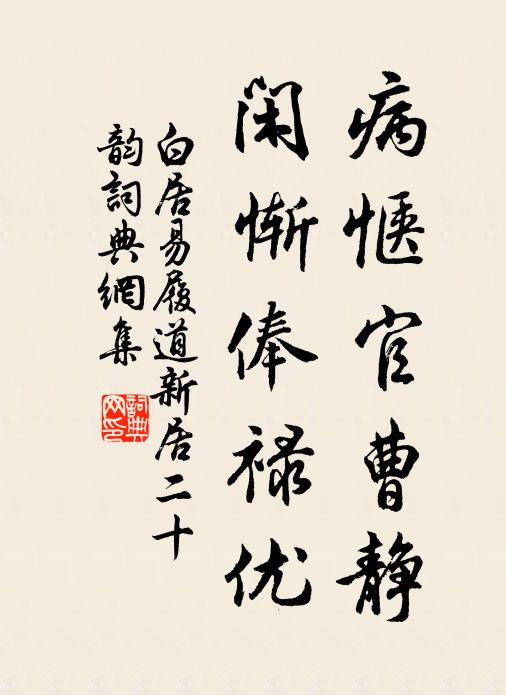 病惬官曹静
闲惭俸禄优
白居易履道新居二十
韵詞典網集
詞典网印